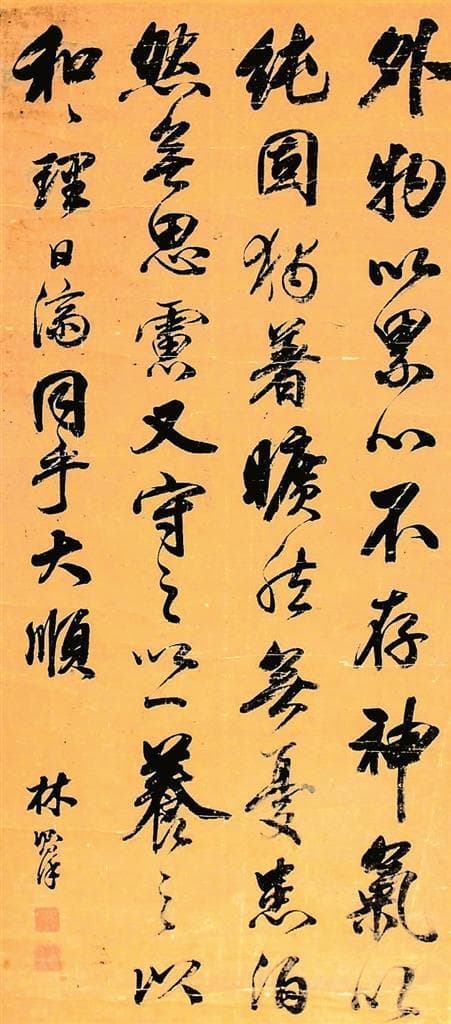 外物以累心不存神氣以
純固獨著曠然無憂患泊
然無思慮又守之以一養之以
和々理日濟同乎大順
林